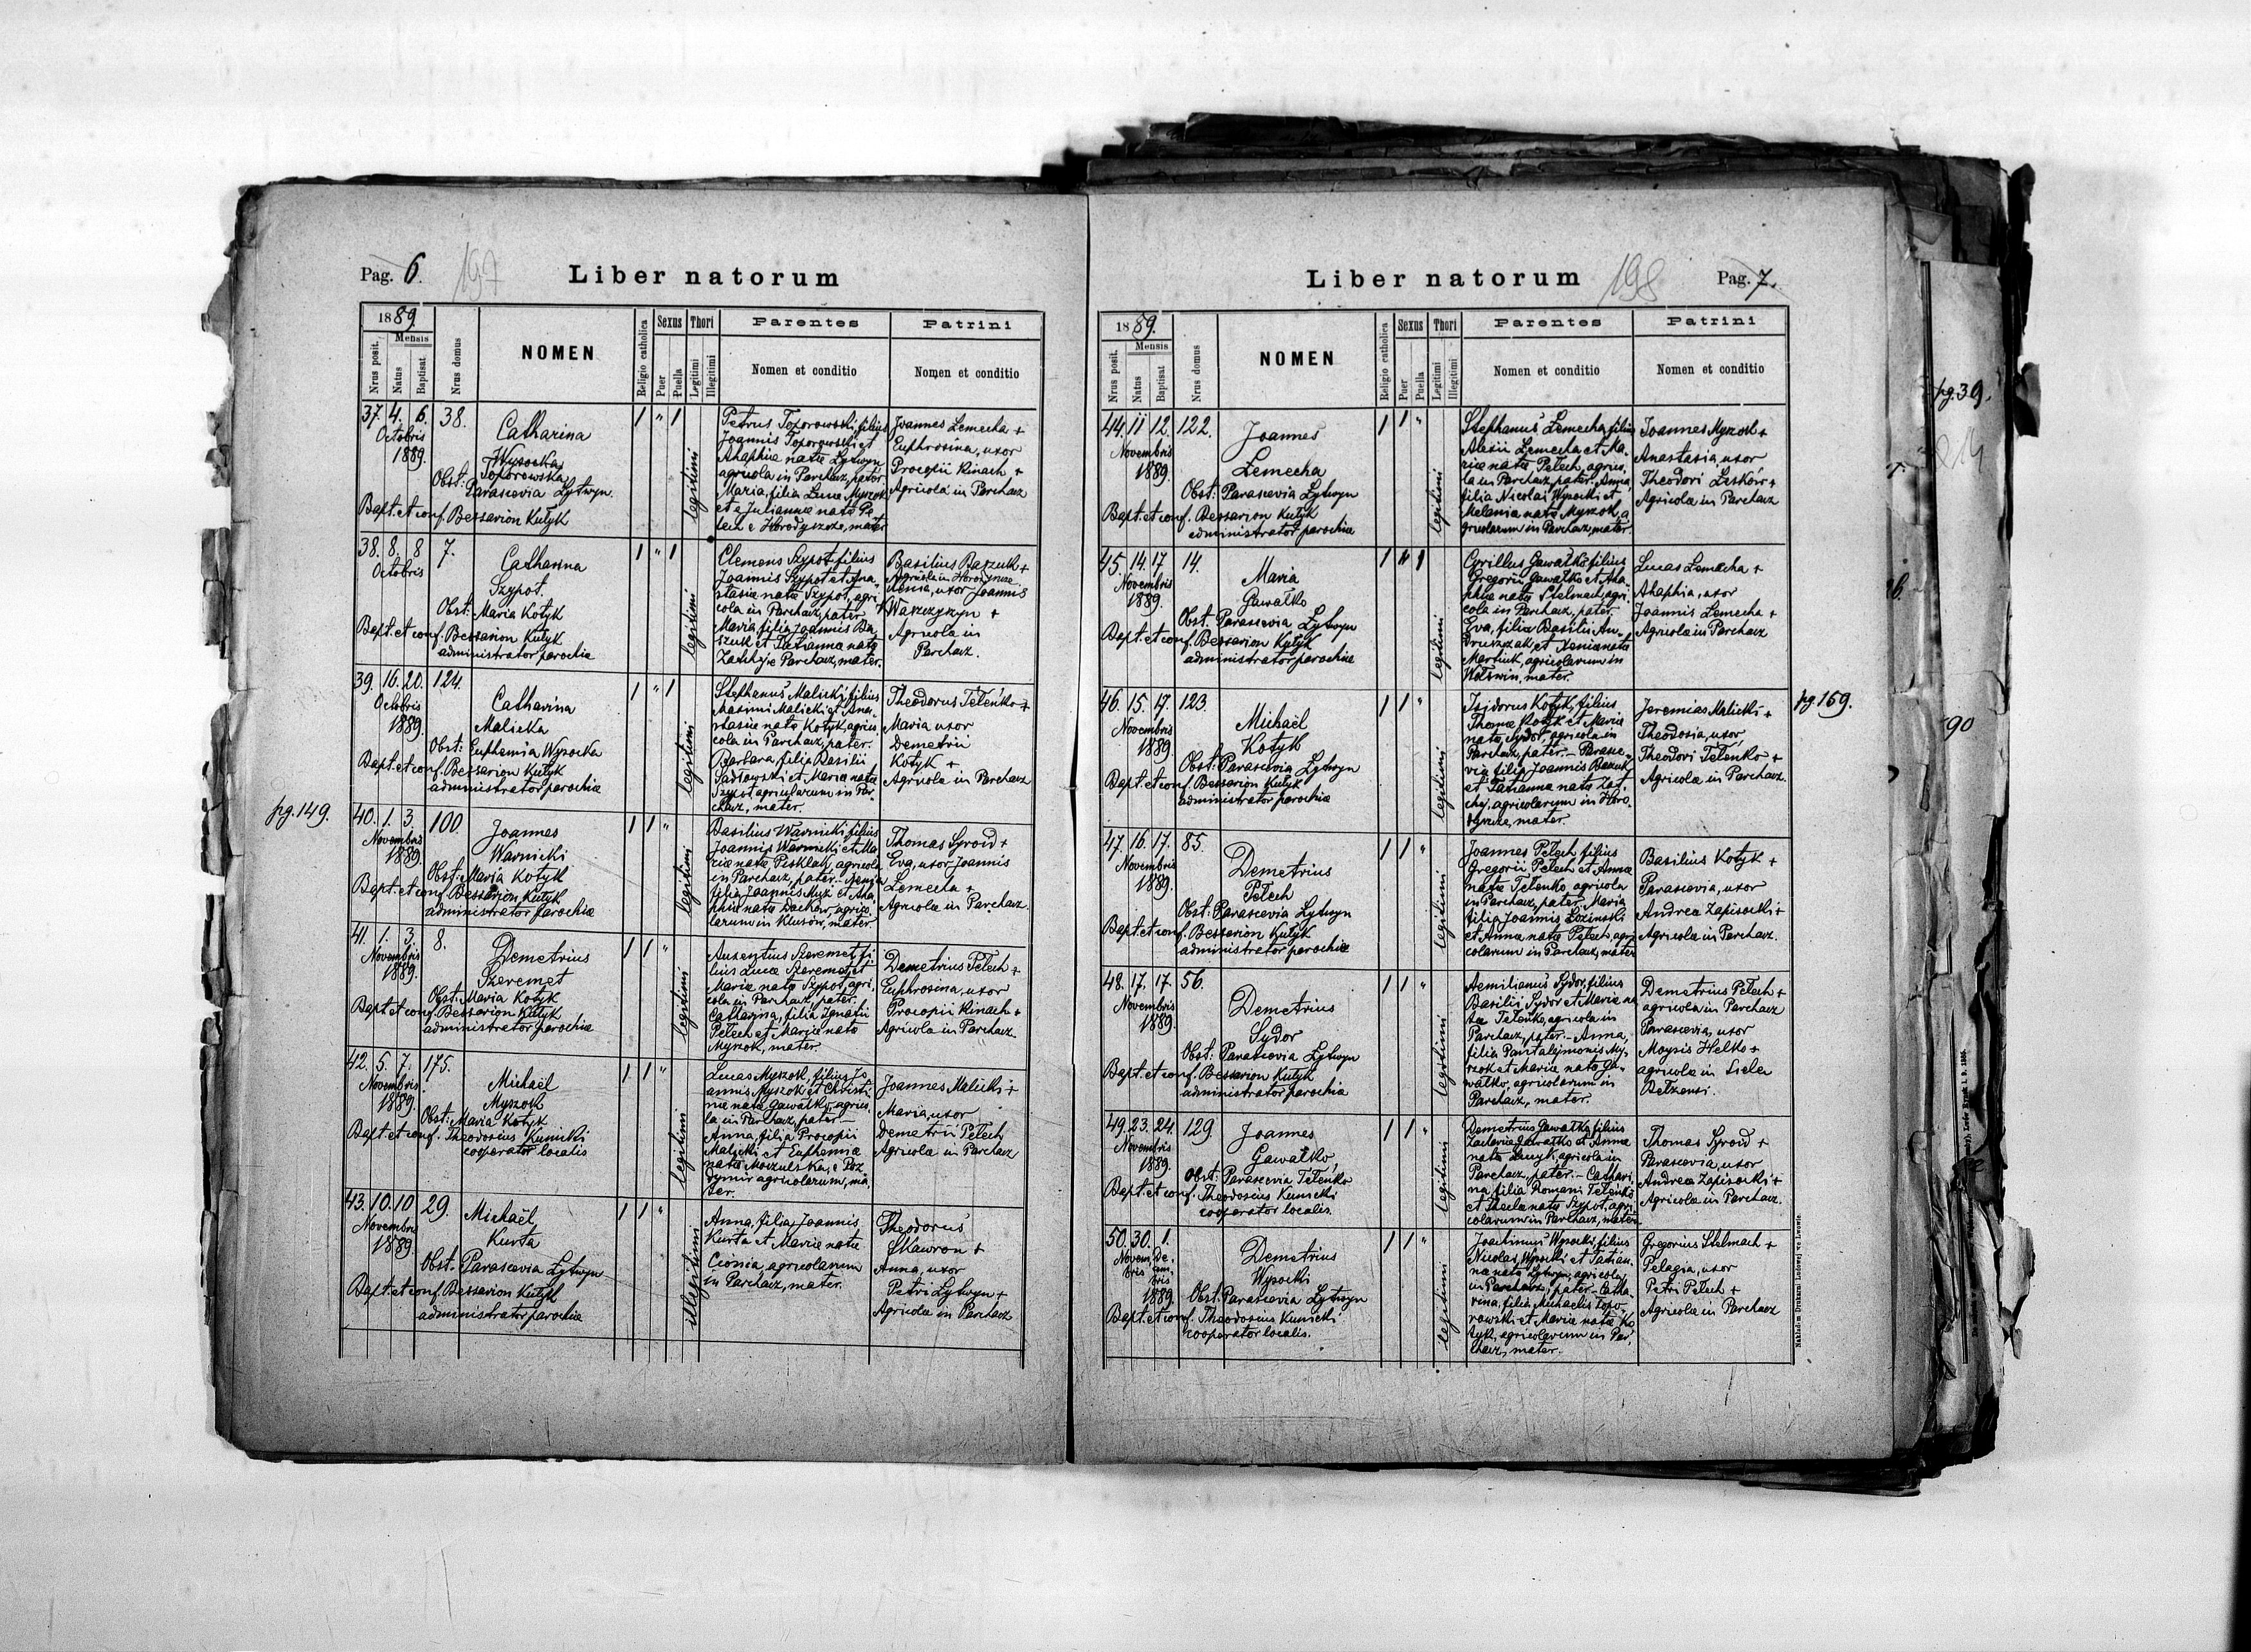 Pag. 6.
197
Liber natorum
1889.
Mensis
Nrus posit.
Natus
Baptisat
Nrus domus
NOMEN
Religio catholica
Sexus
Puer
Puella
Thori
Legitimi
Illegitimi
Parentes
Nomen et conditio
Patrini
Nomen et conditio
37. 4. 6. 38.
Octobris
1889.
Catharina
Wysocka
Toporowska
Obst: Parascevia Lytwyn.
Bapt. et conf. Bessarion Kutyk
1 " 1
legitimi
Petrus Toporowski, filius
Joannis Toporowski et
Ahaphiæ natæ Lytwyn
agricola in Parchacz, pater
Maria, filia Lucæ Myszok
et Juliannæ natæ Pe
tech e Horodyszcze, mater
Joannes Lemecha +
Euphrosina, uxor
Procopii Kinach +
Agricolæ in Parchacz
38. 8. 8 7.
Octobris
Catharina
Szypot.
Obst: Maria Kotyk
Bapt. et conf. Bessarion Kutyk
administrator parochiæ
1 " 1
legitimi
Clemens Szypot filius
Joannis Szypot et Ana
stasiæ natæ Szypot, agri
cola in Parchacz, pater
Maria, filia Joannis Ba
szuk et Tatiannæ natæ
Zatchyj e Parchacz, mater.
Basilius Baszuk +
Agricola in Horodyszcze
Xenia, uxor Joannis
Waszczyszyn +
Agricola in
Parchacz.
39. 16. 20. 124.
Octobris
1889.
Catharina
Malicka
Obst: Euphemia Wysocka
Bapt. et conf. Bessarion Kutyk
administrator parochiæ
1 " 1
legitimi
Stephanus Malicki, filius
Maximi Malicki et Ana
stasiæ natæ Kotyk, agri
cola in Parchacz, pater.
Barbara, filia Basilii
Sadlowski et Mariæ natæ
Szypot agricolarum in Par
chacz, mater.
Theodorus Tełenko +
Maria uxor
Demetrii
Kotyk +
Agricolæ in Parchacz
pg. 149.
40. 1. 3. 100.
Novembris
1889.
Joannes
Warnicki
Obst: Maria Kotyk
Bapt. et conf. Bessarion Kutyk
administrator parochiæ
1 1 "
legitimi
Basilius Warnicki filius
Joannis Warnicki et Ma
riæ natæ Pesklak, agricola
in Parchacz, pater. Xenia
filia Joannis Muzi et Aha
phiæ natæ Dackow, agrico
larum in Klusów, mater.
Thomas Syroid +
Eva, uxor Joannis
Lemecha +
Agricolæ in Parchacz.
41. 1. 3. 8.
Novembris
1889.
Demetrius
Szeremet
Obst: Maria Kotyk
Bapt et conf. Bessarion Kutyk
administrator parochiæ
1 1 "
legitimi
Auxentius Szeremet, fi
lius Lucæ Szeremet, et
Mariæ natæ Szypot, agri
cola in Parchacz, pater.
Catharina, filia Ignatii
Petech et Mariæ natæ
Myszok, mater.
Demetrius Petech +
Euphrosina, uxor
Procopii Kinach +
Agricola in Parchacz
42. 5. 7. 175.
Novembris
1889.
Michaël
Myszok
Obst: Maria Kotyk
Bapt. et conf. Theodosius Kunicki
cooperator localis
1 1 "
legitimi
Lucas Myszok, filius Jo
annis Myszok et Christi
næ natæ Gawałko, agrico
la in Parchacz, pater
Anna, filia Procopii
Malicki et Euphemiæ
natæ Moczulska, e Poz
dymir agricolarum, ma
ter.
Joannes Malicki +
Maria, uxor
Demetrii Petech
Agricolæ in Parchacz
43. 10. 10 29.
Novembris
1889.
Michaël
Kurta
Obst: Parascevia Lytwyn
Bapt. et conf. Bessarion Kutyk
administrator parochiæ
1 1 "
illegitimi
Anna, filia Joannis
Kurta et Mariæ natæ
Ciosnia, agricolarum
in Parchacz, mater.
Theodorus
Skawron +
Anna, uxor
Petri Lytwyn +
Agricolæ in Parchacz
Liber natorum
198
Pag. 7.
1889.
Mensis
Nrus posit.
Natus
Baptisat
Nrus domus
NOMEN
Religio catholica
Sexus
Puer
Puella
Thori
Legitimi
Illegitimi
Parentes
Nomen et conditio
Patrini
Nomen et conditio
44. 11 12. 122.
Novembris
1889.
Joannes
Lemecha
Obst: Parascevia Lytwyn
Bapt. et conf. Bessarion Kutyk
administrator parochiæ
1 1 "
legitimi
Stephanus Lemecha, filius
Alexii Lemecha et Ma
riæ natæ Petech, agrico
la in Parchacz, pater. Anna,
filia Nicolai Wysocki et
Melania natæ Myszok, a
gricolarum in Parchacz, mater.
Joannes Myszok +
Anastasia, uxor
Theodori Leśków +
Agricolæ in Parchacz
45. 14. 17 14.
Novembris
1889.
Maria
Gawałko
Obst: Parascevia Lytwyn
Bapt. et conf. Bessarion Kutyk
administrator parochiæ
1 " 1
legitimi
Cyrillus Gawałko filius
Gregorii Gawałko et Aha
phiæ natæ Stelmach, agri
cola in Parchacz, pater.
Eva, filia Basilii An
druszczak et Xeniæ natæ
Martiuk, agricolarum in
Wolswin, mater.
Lucas Lemecha +
Ahaphia, uxor
Joannis Lemecha +
Agricolæ in Parchacz
46. 15. 17. 123.
Novembris
1889.
Michaël
Kotyk
Obst: Parascevia Lytwyn
Bapt. et conf. Bessarion Kutyk
administrator parochiæ
1 1 "
legitimi
Isidorus Kotyk, filius
Thomæ Kotyk et Mariæ
natæ Sydor, agricola in
Parchacz, pater. – Parasce
via filia Joannis Baszuk
et Tatianna natæ Zat
chyj, agricolarum in Horo
dyszcze, mater.
Jeremias Malicki +
Theodosia, uxor
Theodori Tełenko +
Agricolæ in Parchacz.
pg. 169.
47. 16. 17. 85.
Novembris
1889.
Demetrius
Petech
Obst: Parascevia Lytwyn
Bapt. et conf. Bessarion Kutyk
administrator parochiæ
1 1 "
legitimi
Joannes Petech, filius
Gregorii Petech et Annæ
natæ Tełenko, agricola
in Parchacz, pater. Maria
filia Joannis Łozinski
et Annæ natæ Petech, agri
colarum in Parchacz, mater
Basilius Kotyk +
Parascevia, uxor
Andreæ Zapisocki +
Agricolæ in Parchacz.
48. 17. 17. 56.
Novembris
1889.
Demetrius
Sydor
Obst: Parascevia Lytwyn
Bapt. et conf. Bessarion Kutyk
administrator parochiæ
1 1 "
legitimi
Aemilianus Sydor, filius
Basilii Sydor et Mariæ na
tæ Tełenko, agricola in
Parchacz, pater. – Anna,
filia Pantalejmonis My
szok et Mariæ natæ Ga
wałko, agricolarum in
Parchacz, mater.
Demetrius Petech +
agricola in Parchacz
Parascevia, uxor
Moysis Helko +
agricolæ in Sielec
Bełzensi.
49. 23. 24. 129.
Novembris
1889.
Joannes
Gawałko
Obst: Parascevia Tełenko
Bapt. et conf. Theodosius Kunicki
cooperator localis.
1 1 "
legitimi
Demetrius Gawałko, filius
Zachariæ Gawałko et Annæ
natæ Lucyk, agricola in
Parchacz, pater. – Cathari
na, filia Romani Tełenko
et Theclæ natæ Szypot, agri
colarum in Parchacz, mater.
Thomas Syroid +
Parascevia, uxor
Andreæ Zapisocki +
Agricolæ in Parchacz.
50. 30. 1.
Novem De
bris cem
bris
1889.
Demetrius
Wysocki
Obst: Parascevia Lytwyn
Bapt. et conf. Theodosius Kunicki
cooperator localis.
1 1 "
legitimi
Joachimus Wysocki, filius
Nicolai Wysocki et Tatian
næ natæ Lytwyn, agricola
in Parchacz, pater – Catha
rina, filia Michaelis Topo
rowski et Mariæ natæ Ko
tyk, agricolarum in Par
chacz, mater.
Gregorius Stelmach +
Pelagia, uxor
Petri Petech +
Agricolæ in Parchacz
Nakładem Drukarni Ludowej we Lwowie.
pg. 39.
90